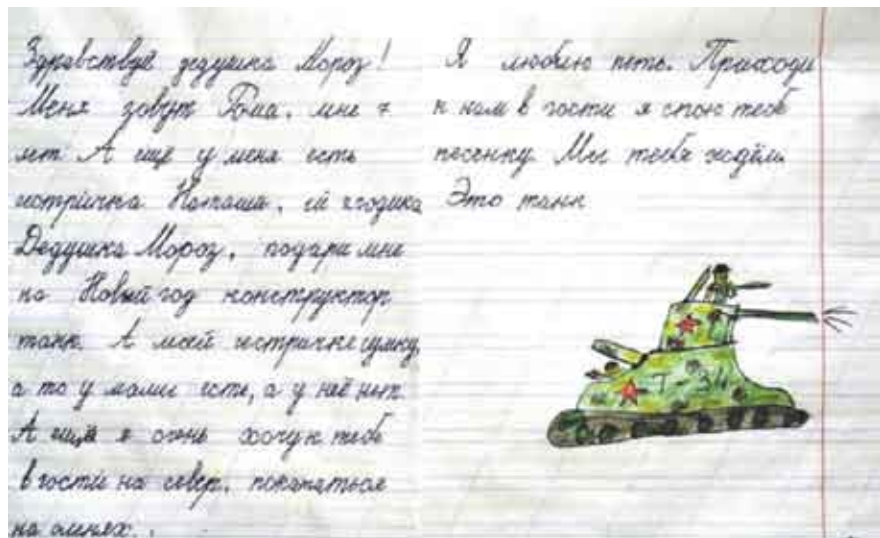 Здравствуй дедушка Мороз!
Меня зовут Рома, мне 7
лет А ещё у меня есть
сестричка Наташа, ей годика
Дедушка Мороз, подари мне
на Новый год конструктор
танк. А моей сестричке сумку,
а то у мамы есть, а у неё нет.
А ещё я очень хочу к тебе
в гости на север, покататься
на оленях.
Я люблю петь. Приходи
к нам в гости я спою тебе
песенку. Мы тебя ждём.
Это танк
Т 34